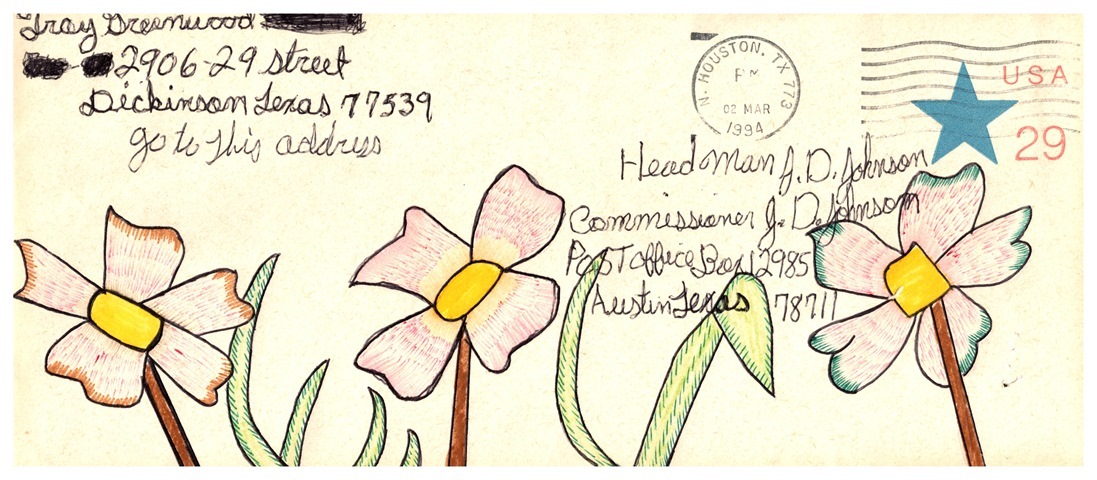 Troy Greenwood
2906-29 Street
Dickinson Texas 77539
go to this address
N. HOUSTON, TX 773
PM
02 MAR
1994
USA
29
Head Man J. D. Johnson
Commissioner J. D. Johnson
Post office Box 12985
Austin Texas 78711